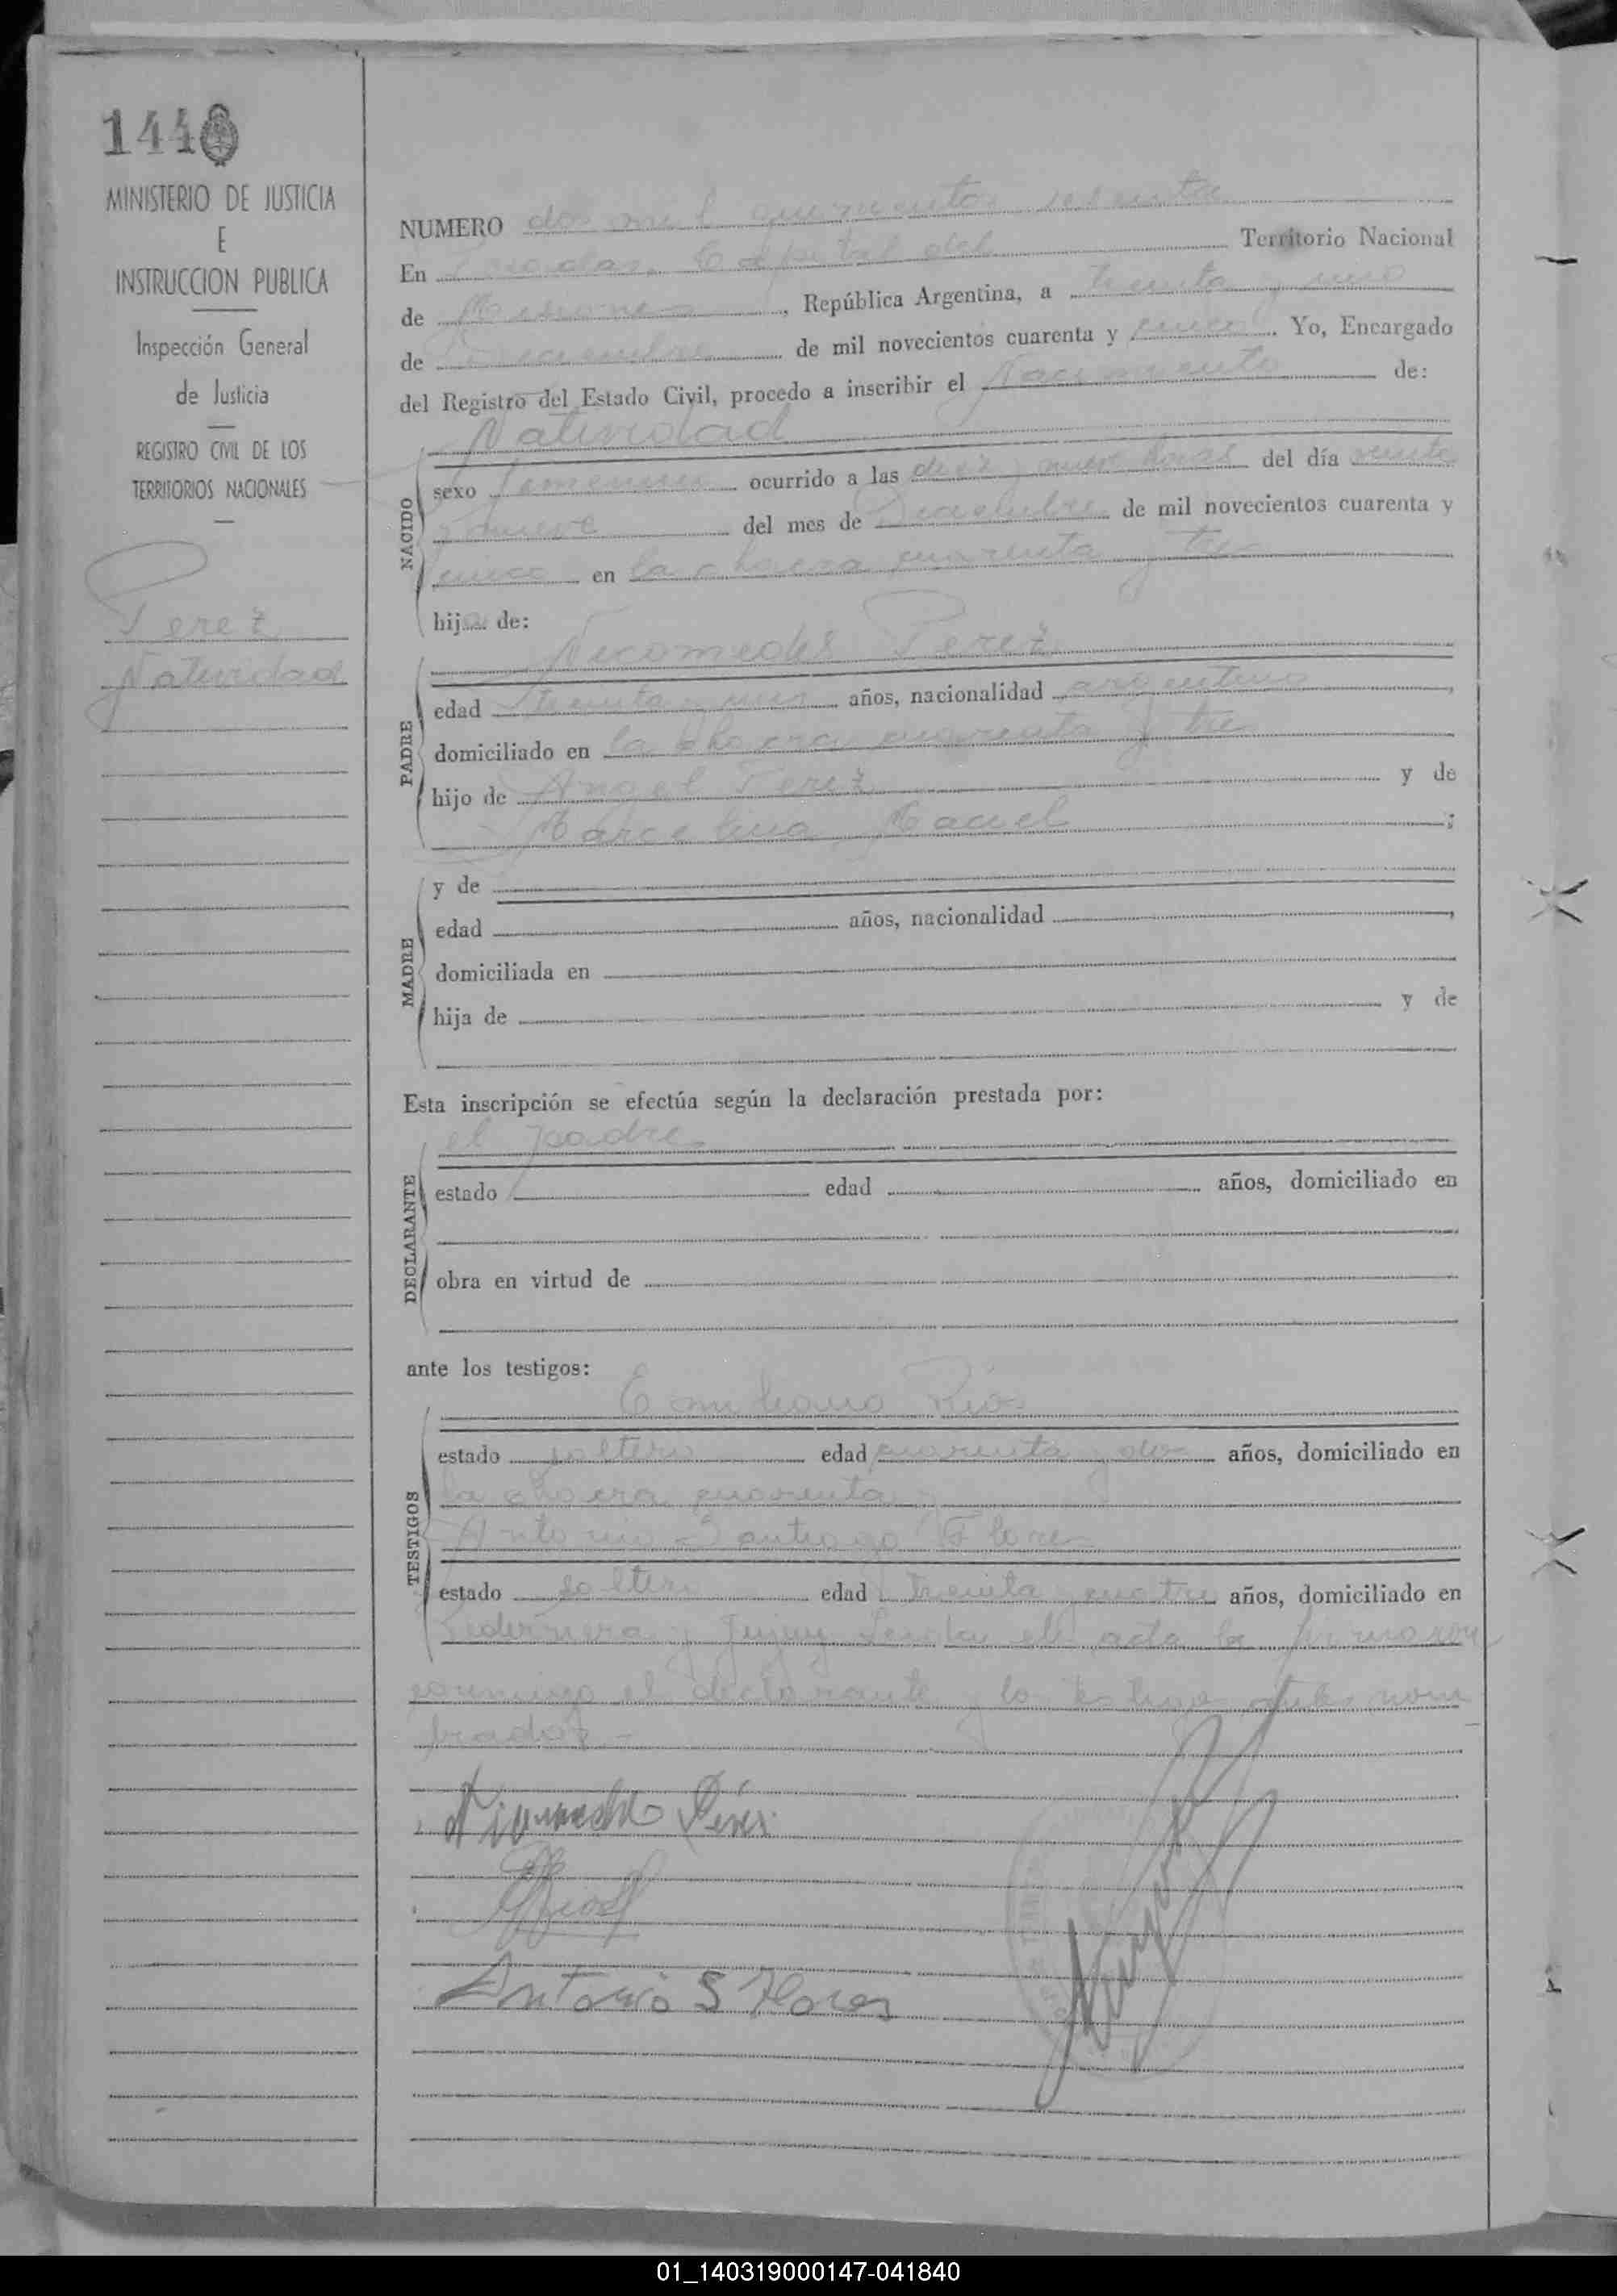 144
MINISTERIO DE JUSTICIA
E
INSTRUCCION PUBLICA
Inspección General
de Justicia
REGISTRO CIVIL DE LOS
TERRITORIOS NACIONALES
Perez
Natividad
NUMERO dos mil quinientos sesenta
En Posadas, Capital del Territorio Nacional
de Misiones, República Argentina, a treinta y uno
de Diciembre de mil novecientos cuarenta y cinco. Yo, Encargado
del Registro del Estado Civil, procedo a inscribir el Nacimiento de:
Natividad
NACIDO
sexo femenino ocurrido a las diez y nueve horas del día veinte
y nueve del mes de Diciembre de mil novecientos cuarenta y
cinco en la chacra cuarenta y tres
hija de:
Nicomedes Perez
PADRE
edad treinta y años, nacionalidad argentino,
domiciliado en la chacra cuarenta y tres
hijo de Angel Perez y de
Marcelina Maciel;
MADRE
y de
edad años, nacionalidad,
domiciliada en
hija de y de
Esta inscripción se efectúa según la declaración prestada por:
el padre
DECLARANTE
estado edad años, domiciliado en
obra en virtud de
ante los testigos:
Emiliano Rios
TESTIGOS
estado soltero edad cuarenta y dos años, domiciliado en
la chacra cuarenta
Antonio Santiago Flores
estado soltero edad treinta y cuatro años, domiciliado en
y Jujuy Leida el acta la firmaron
conmigo el declarante y los testigos antes nom
brados.-
Perez
Antonio S Flores
01_140319000147-041840